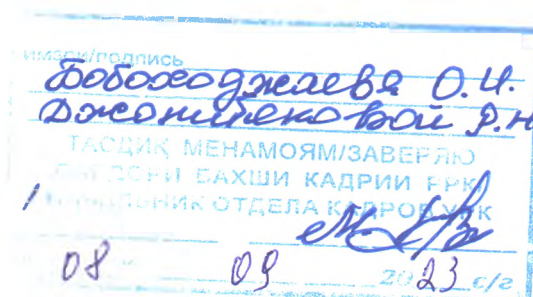 ИМЗОИ/ПОДПИСЬ
Бобоходжаева О.И.
Джонибековой Р.Н
ТАСДИК МЕНАМОЯМ/ЗАВЕРЯЮ
САРДОРИ БАХШИ КАДРИИ РРК
НАЧАЛЬНИК ОТДЕЛА КАДРОВ УРК
08 09 2023 с/г